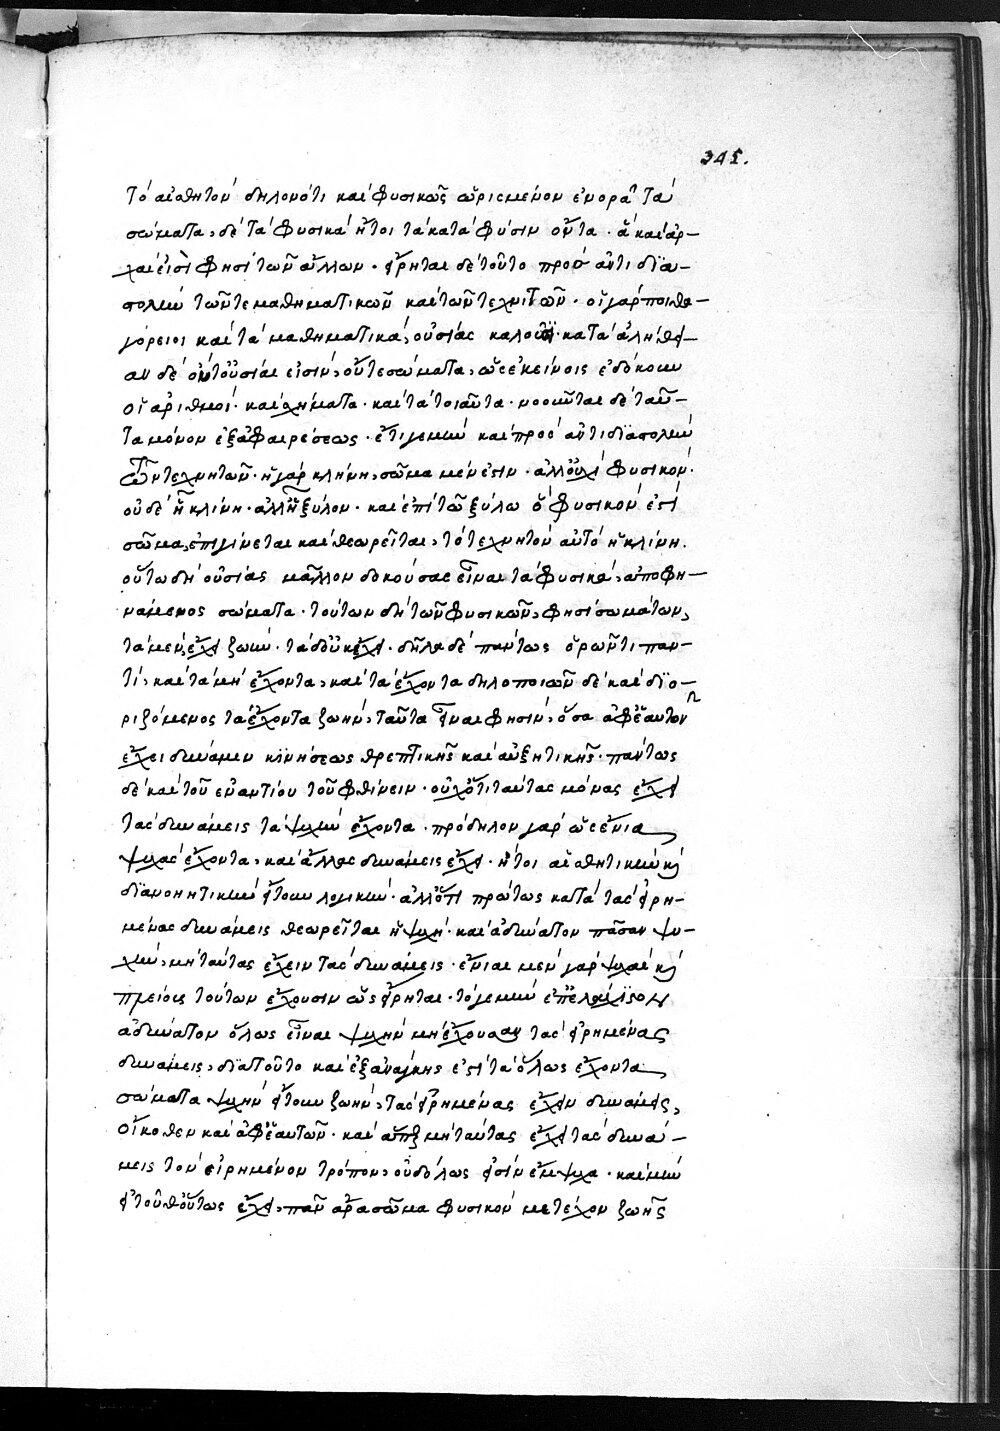 345.
τὸ αἰσθητὸν δηλονότι καὶ φυσικῶς ὡρισμένον ἐνορᾶται
σώματα, δὲ τὰ φυσικὰ ἤτοι τὰ κατὰ φύσιν ὄντα · ἃ καὶ ἀρ-
χαί εἰσὶ φησὶ τῶν ἄλλων · εἴρηται δὲ τοῦτο πρὸς ἀντιδϊα-
στολὴν τῶν τε μαθηματικῶν καὶ τῶν τεχνιτῶν · οἱ γὰρ πυθα-
γόρειοι καὶ τὰ μαθηματικὰ, οὐσίας καλοῦσι · κατὰ ἀλήθει-
αν δὲ οὔτ οὐσίαι εἰσὶν, οὔτε σώματα, ὡς ἐκείνοις ἐδόκουν
οἱ ἀριθμοί · καὶ σχήματα · καὶ τὰ τοιαῦτα · νοοῦνται δὲ ταῦ-
τα μόνον ἐξ ἀφαιρέσεως · ἔτι γε μὴν καὶ πρὸς ἀντιδϊαστολὴν
τῶν τεχνητῶν · ἡ γὰρ κλίνη, σῶμα μέν ἐστιν · ἀλλ' οὐχὶ φυσικόν ·
οὐδὲ ᾗ κλίνη · ἀλλ' ᾗ ξύλον · καὶ ἐπὶ τῶ ξύλω ὃ φυσικόν ἐστὶ
σῶμα, ἐπιγίνεται καὶ θεωρεῖται, τὸ τεχνητὸν αὐτὸ ἡ κλίνη.
οὕτω δὴ οὐσίας μᾶλλον δοκούσας εἶναι τὰ φυσικὰ, ἀποφη-
νάμενος σώματα · τούτων δὴ τῶν φυσικῶν, φησὶ σωμάτων,
τὰ μὲν, ἔχει ζωήν · τὰ δ' οὐκ ἔχει · δῆλα δὲ πάντως ὁρῶντι παν-
τὶ, καὶ τὰ μὴ ἔχοντα, καὶ τὰ ἔχοντα δηλοποιῶν δὲ καὶ δϊο-
ριζόμενος τὰ ἔχοντα ζωὴν, ταῦτα εἶναι φησὶν, ὅσα ἀφ' ἑαυτῶν
ἔχει δύναμιν κινήσεως θρεπτικῆς καὶ αὐξητικῆς · πάντως
δὲ καὶ τοῦ ἐναντίου τοῦ φθίνειν · οὐχ ὅτι ταύτας μόνας ἔχει
τὰς δυνάμεις τὰ ψυχὴν ἔχοντα · πρόδηλον γὰρ ὡς ἔνια
ψυχὰς ἔχοντα, καὶ ἄλλας δυνάμεις ἔχει · ἤτοι αἰσθητικὴν καὶ
δϊανοητικὴν εἴτουν λογικήν · ἀλλ' ὅτι πρώτως κατὰ τὰς εἰρη-
μένας δυνάμεις θεωρεῖται ἡ ψυχή · καὶ ἀδύνατον πᾶσαν ψυ-
χὴν, μὴ ταύτας ἔχειν τὰς δυνάμεις · ἔνιαι μὲν γὰρ ψυχαὶ καὶ
πλείους τούτων ἔχουσιν ὡς εἴρηται · τό γε μὴν ἐπ' ἐλάχιστον
ἀδύνατον ὅλως εἶναι ψυχὴν μὴ ἔχουσαν τὰς εἰρημένας
δυνάμεις, δϊατοῦτο καὶ ἐξανάγκης ἐστὶ τὰ ὅλως ἔχοντα
σώματα ψυχὴν εἴτουν ζωὴν, τὰς εἰρημένας ἔχειν δυνάμεις,
οἴκοθεν καὶ ἀφ' ἑαυτῶν · καὶ ἅπερ μὴ ταύτας ἔχει τὰς δυνά-
μεις τὸν εἰρημένον τρόπον, οὐδ' ὅλως εἰσὶν ἔμψυχα · καὶ μὴν
εἰ τοῦθ' οὕτως ἔχει, πᾶν ἄρα σῶμα φυσικὸν μετέχον ζωῆς